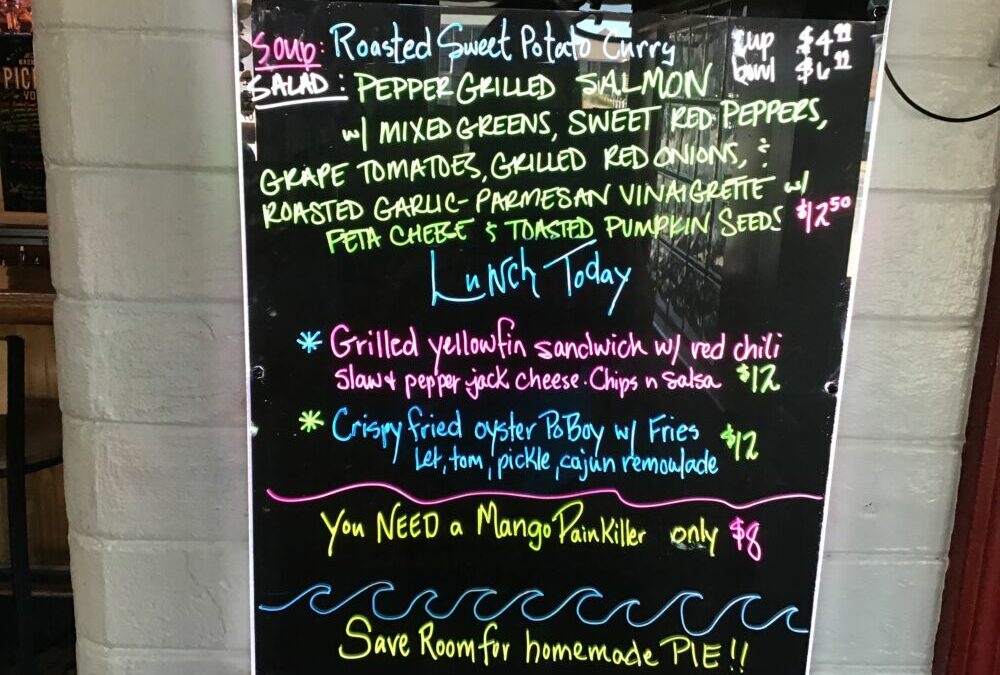 Soup: Roasted Sweet Potato Curry cup $4.99
bowl $6.99
SALAD: PEPPER GRILLED SALMON
w/ MIXED GREENS, SWEET RED PEPPERS,
GRAPE TOMATOES, GRILLED RED ONIONS, &
ROASTED GARLIC-PARMESAN VINAIGRETTE w/
FETA CHEESE & TOASTED PUMPKIN SEEDS $12.50
Lunch Today
* Grilled yellowfin sandwich w/ red chili
slaw & pepper jack cheese. Chips n Salsa $12
* Crispy fried oyster PoBoy w/ Fries $12
Let, tom, pickle, cajun remoulade
You NEED a Mango PainKiller only $8
Save Room for homemade PIE!!
PIC
VO